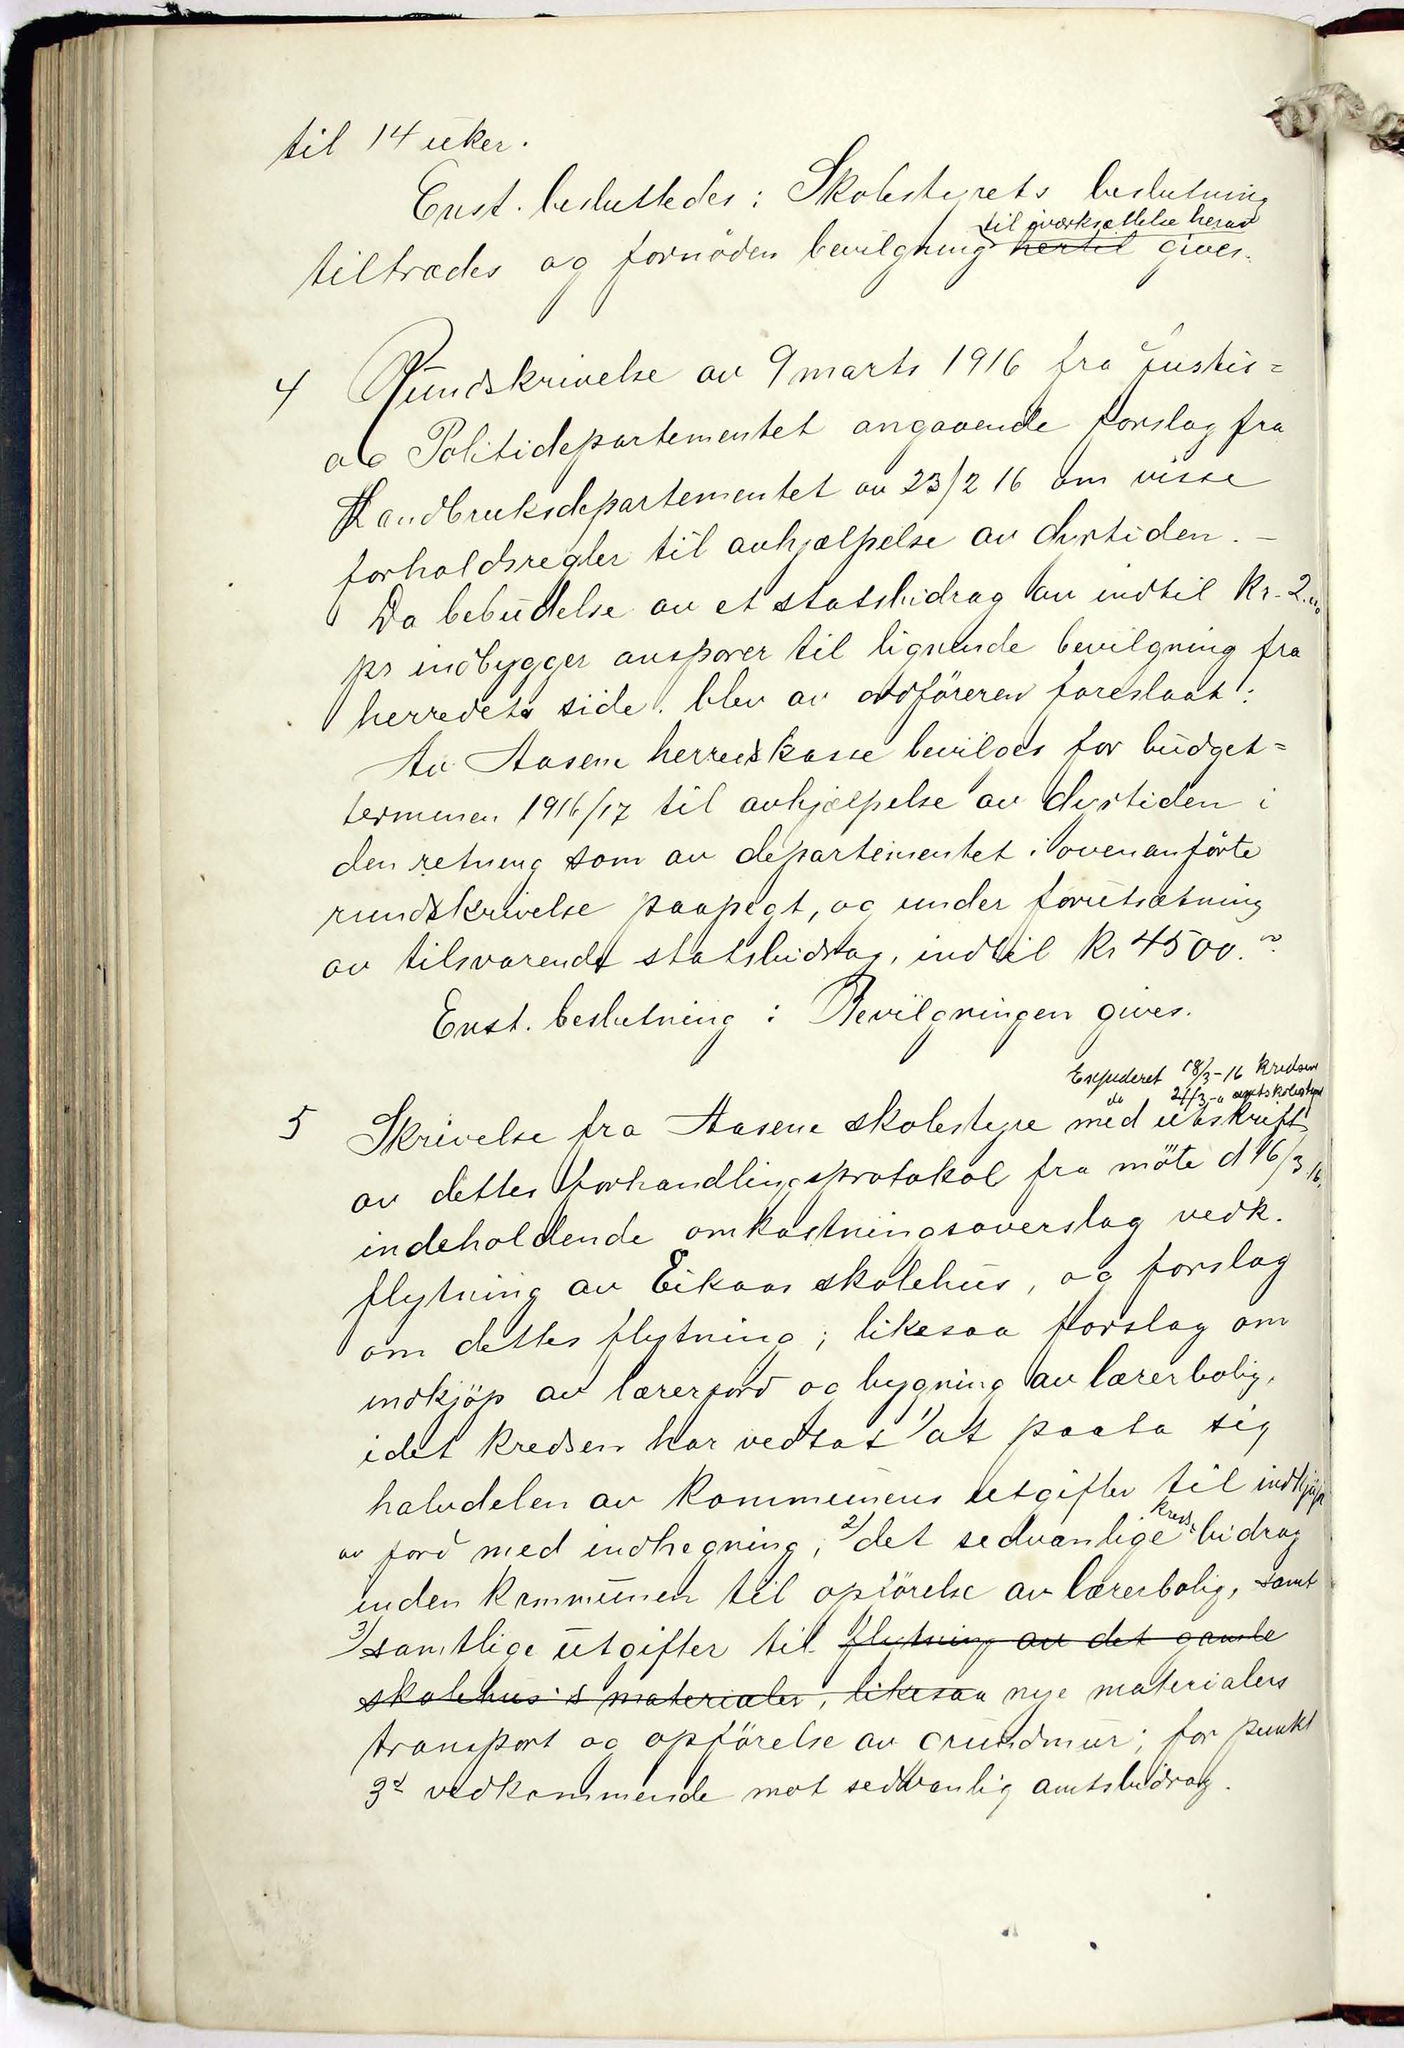 til 14 uker.
Enst. besluttedes: Skolestyrets beslutning
til iverksættelse herav
tiltrædes og fornöden bevilgning hertil gives.
4 Rundskrivelse av 9 marts 1916 fra Justis=
og Politidepartementet angaaende forslag fra
Landbruksdepartementet av 23/2 16 om visse
forholdsregler til avhjælpelse av dyrtiden. –
Da bebudelse av et statsbidrag av indtil Kr. 2.00
pr indbygger ansporer til lignende bevilgning fra
herredets side. blev av ordföreren foreslaat:
Av Aasene herredskasse bevilges for budget=
terminen 1916/17 til avhjælpelse av dyrtiden i
den retning som av departementet i ovenanförte
rundskrivelse paapegt, og under forutsætning
av tilsvarende statsbidrag, indtil Kr 4500.00
Enst. beslutning: Bevilgningen gives.
Expederet 18/3-16 Kredsen
do 21/3-" amtsskolestyret
5 Skrivelse fra Aasene skolestyre med utskrift
av dettes forhandlingsprotokol fra möte d 16/3 16,
indeholdende omkostningsoverslag vedk.
flytning av Eikaas skolehus, og forslag
om dettes flytning; likesaa forslag om
indkjöp av lærerjord og bygning av lærerbolig,
idet kredsen har vedtat 1) at paata sig
halvdelen av kommunens utgifter til indkjöp
av jord med indhegning, 2) det sedvanlige kreds-bidrag
inden kommunen til opförelse av lærerbolig, samt
3) samtlige utgifter til flytning av det gamle
skolehus's materialer, likesaa nye materialers
transport og opförelse av grundmur; for punkt
3d vedkommende mot sedvanlig amtsbidrag.